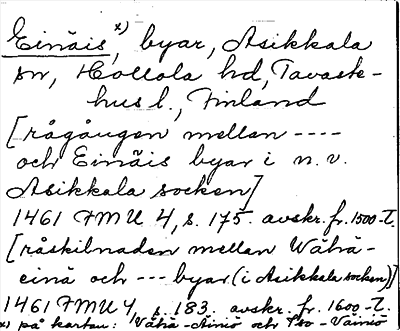 Einäis, x) byar, Asikkala
sn, Hollola hd, Tavaste-
hus l., Finland
[rågången mellan ----
och Einäis byar i n. v.
Asikkala socken]
1461 FMU 4, s. 175. avskr. fr. 1500-t.
[råskilnaden mellan Wähä-
einä och --- byar (i Asikkala socken)]
1461 FMU 4, s. 183. avskr. fr. 1600-t.
x) på kartan: Vähä-Äiniö och Iso-Äiniö